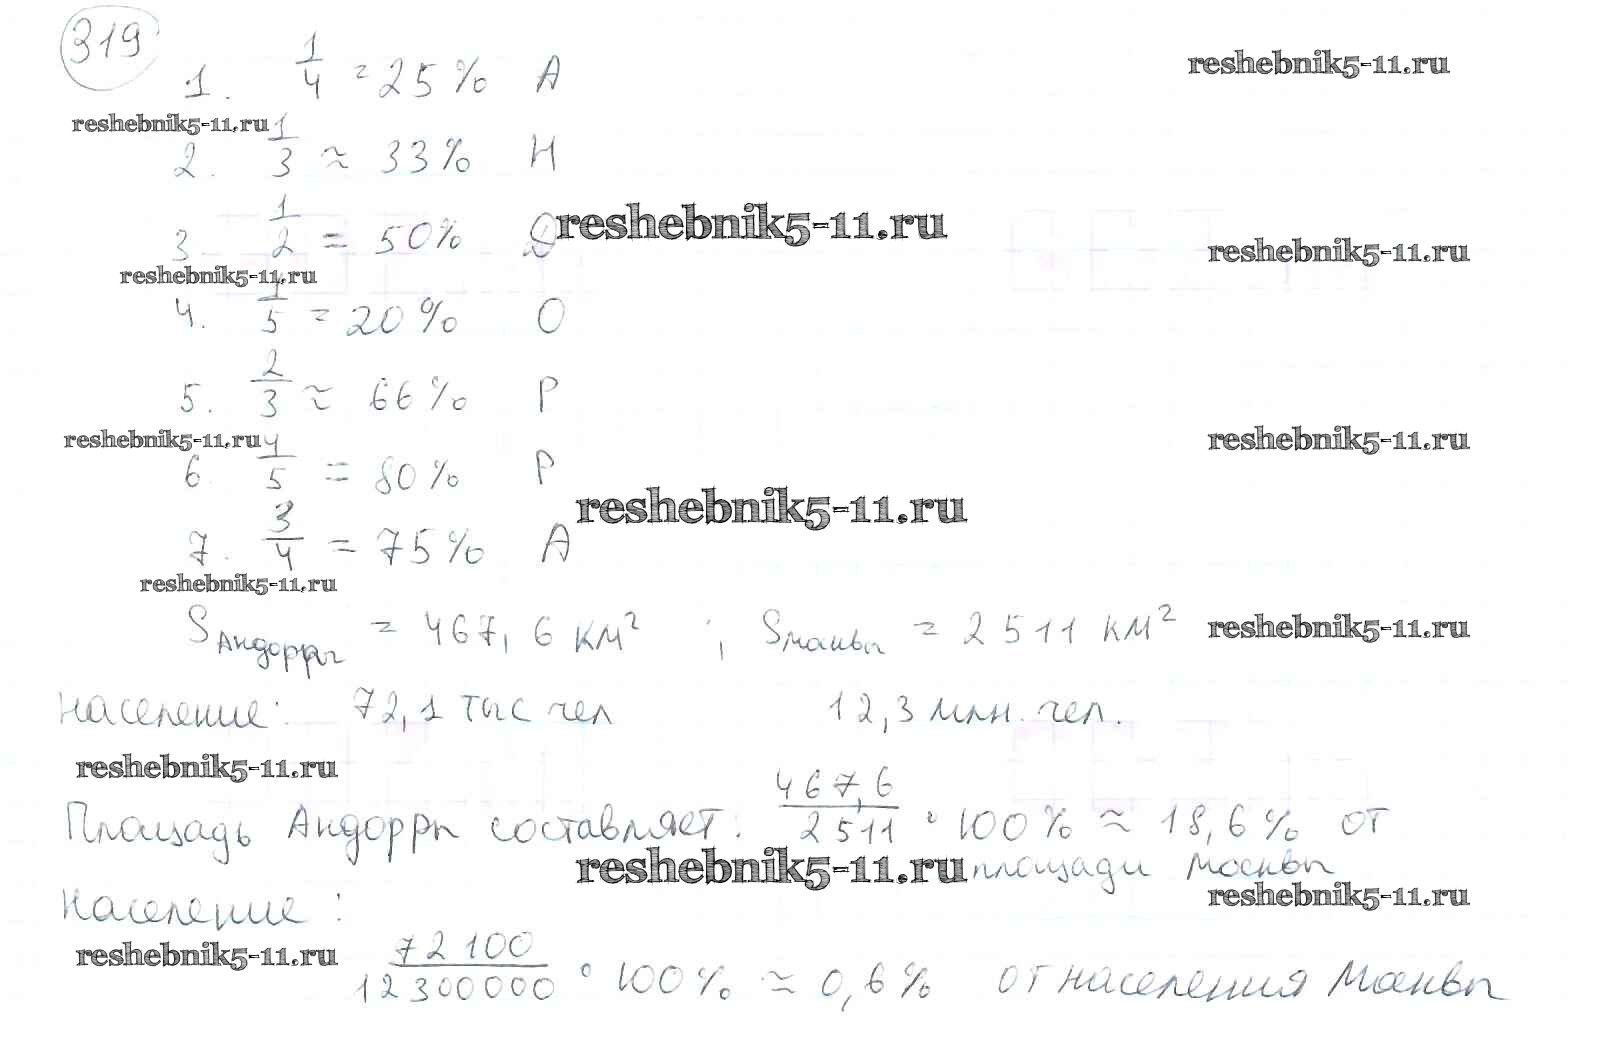 319
1. 1/4 = 25% А
reshebnik5-11.ru
reshebnik5-11.ru
2. 1/3 ≈ 33% Н
3 1/2 = 50% Д
reshebnik5-11.ru
reshebnik5-11.ru
reshebnik5-11.ru
4. 1/5 = 20% О
5. 2/3 ≈ 66% Р
reshebnik5-11.ru
reshebnik5-11.ru
6 4/5 = 80% Р
reshebnik5-11.ru
7. 3/4 = 75% А
reshebnik5-11.ru
S Андорры = 467,6 км² ; S Москвы = 2511 км²
reshebnik5-11.ru
население: 72,1 тыс чел 12,3 млн. чел.
reshebnik5-11.ru
Площадь Андорры составляет: 467,6/2511 · 100% ≈ 18,6% от
площади Москвы
reshebnik5-11.ru
reshebnik5-11.ru
Население:
reshebnik5-11.ru
72100/12300000 · 100% ≈ 0,6% от населения Москвы